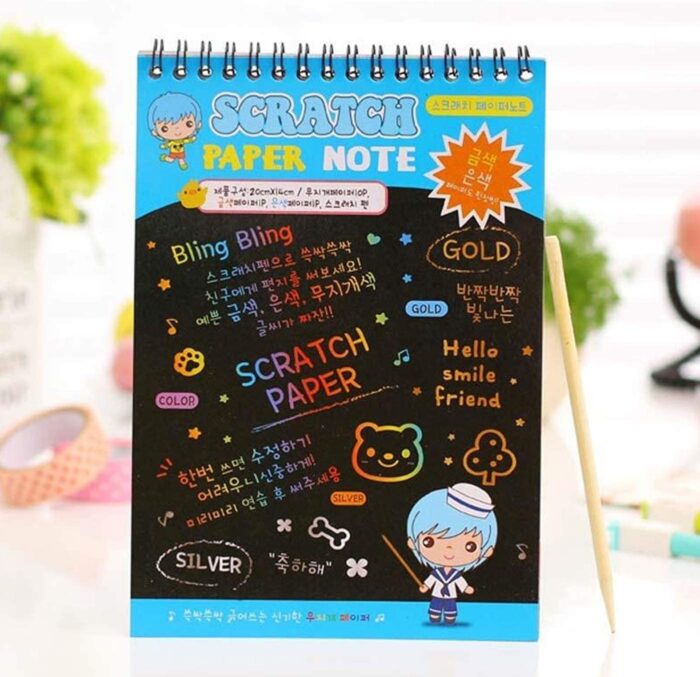 SCRATCH
스크래치 페이퍼노트
PAPER NOTE
금색
은색
제품구성 20cmX14cm / 무지개페이퍼10P,
금색페이퍼1P, 은색페이퍼1P, 스크래치 펜
Bling Bling
스크래치펜으로 쓱싹쓱싹
친구에게 편지를 써보세요!
예쁜 금색, 은색, 무지개색
글씨가 짜잔!!
GOLD
GOLD
반짝반짝
빛나는
SCRATCH
PAPER
Hello
smile
friend
COLOR
한번 쓰면 수정하기
어려우니신중하게!
미리미리 연습 후 써주세용
SILVER
SILVER
"축하해"
쓱싹쓱싹 긁어쓰는 신기한 무지개 페이퍼